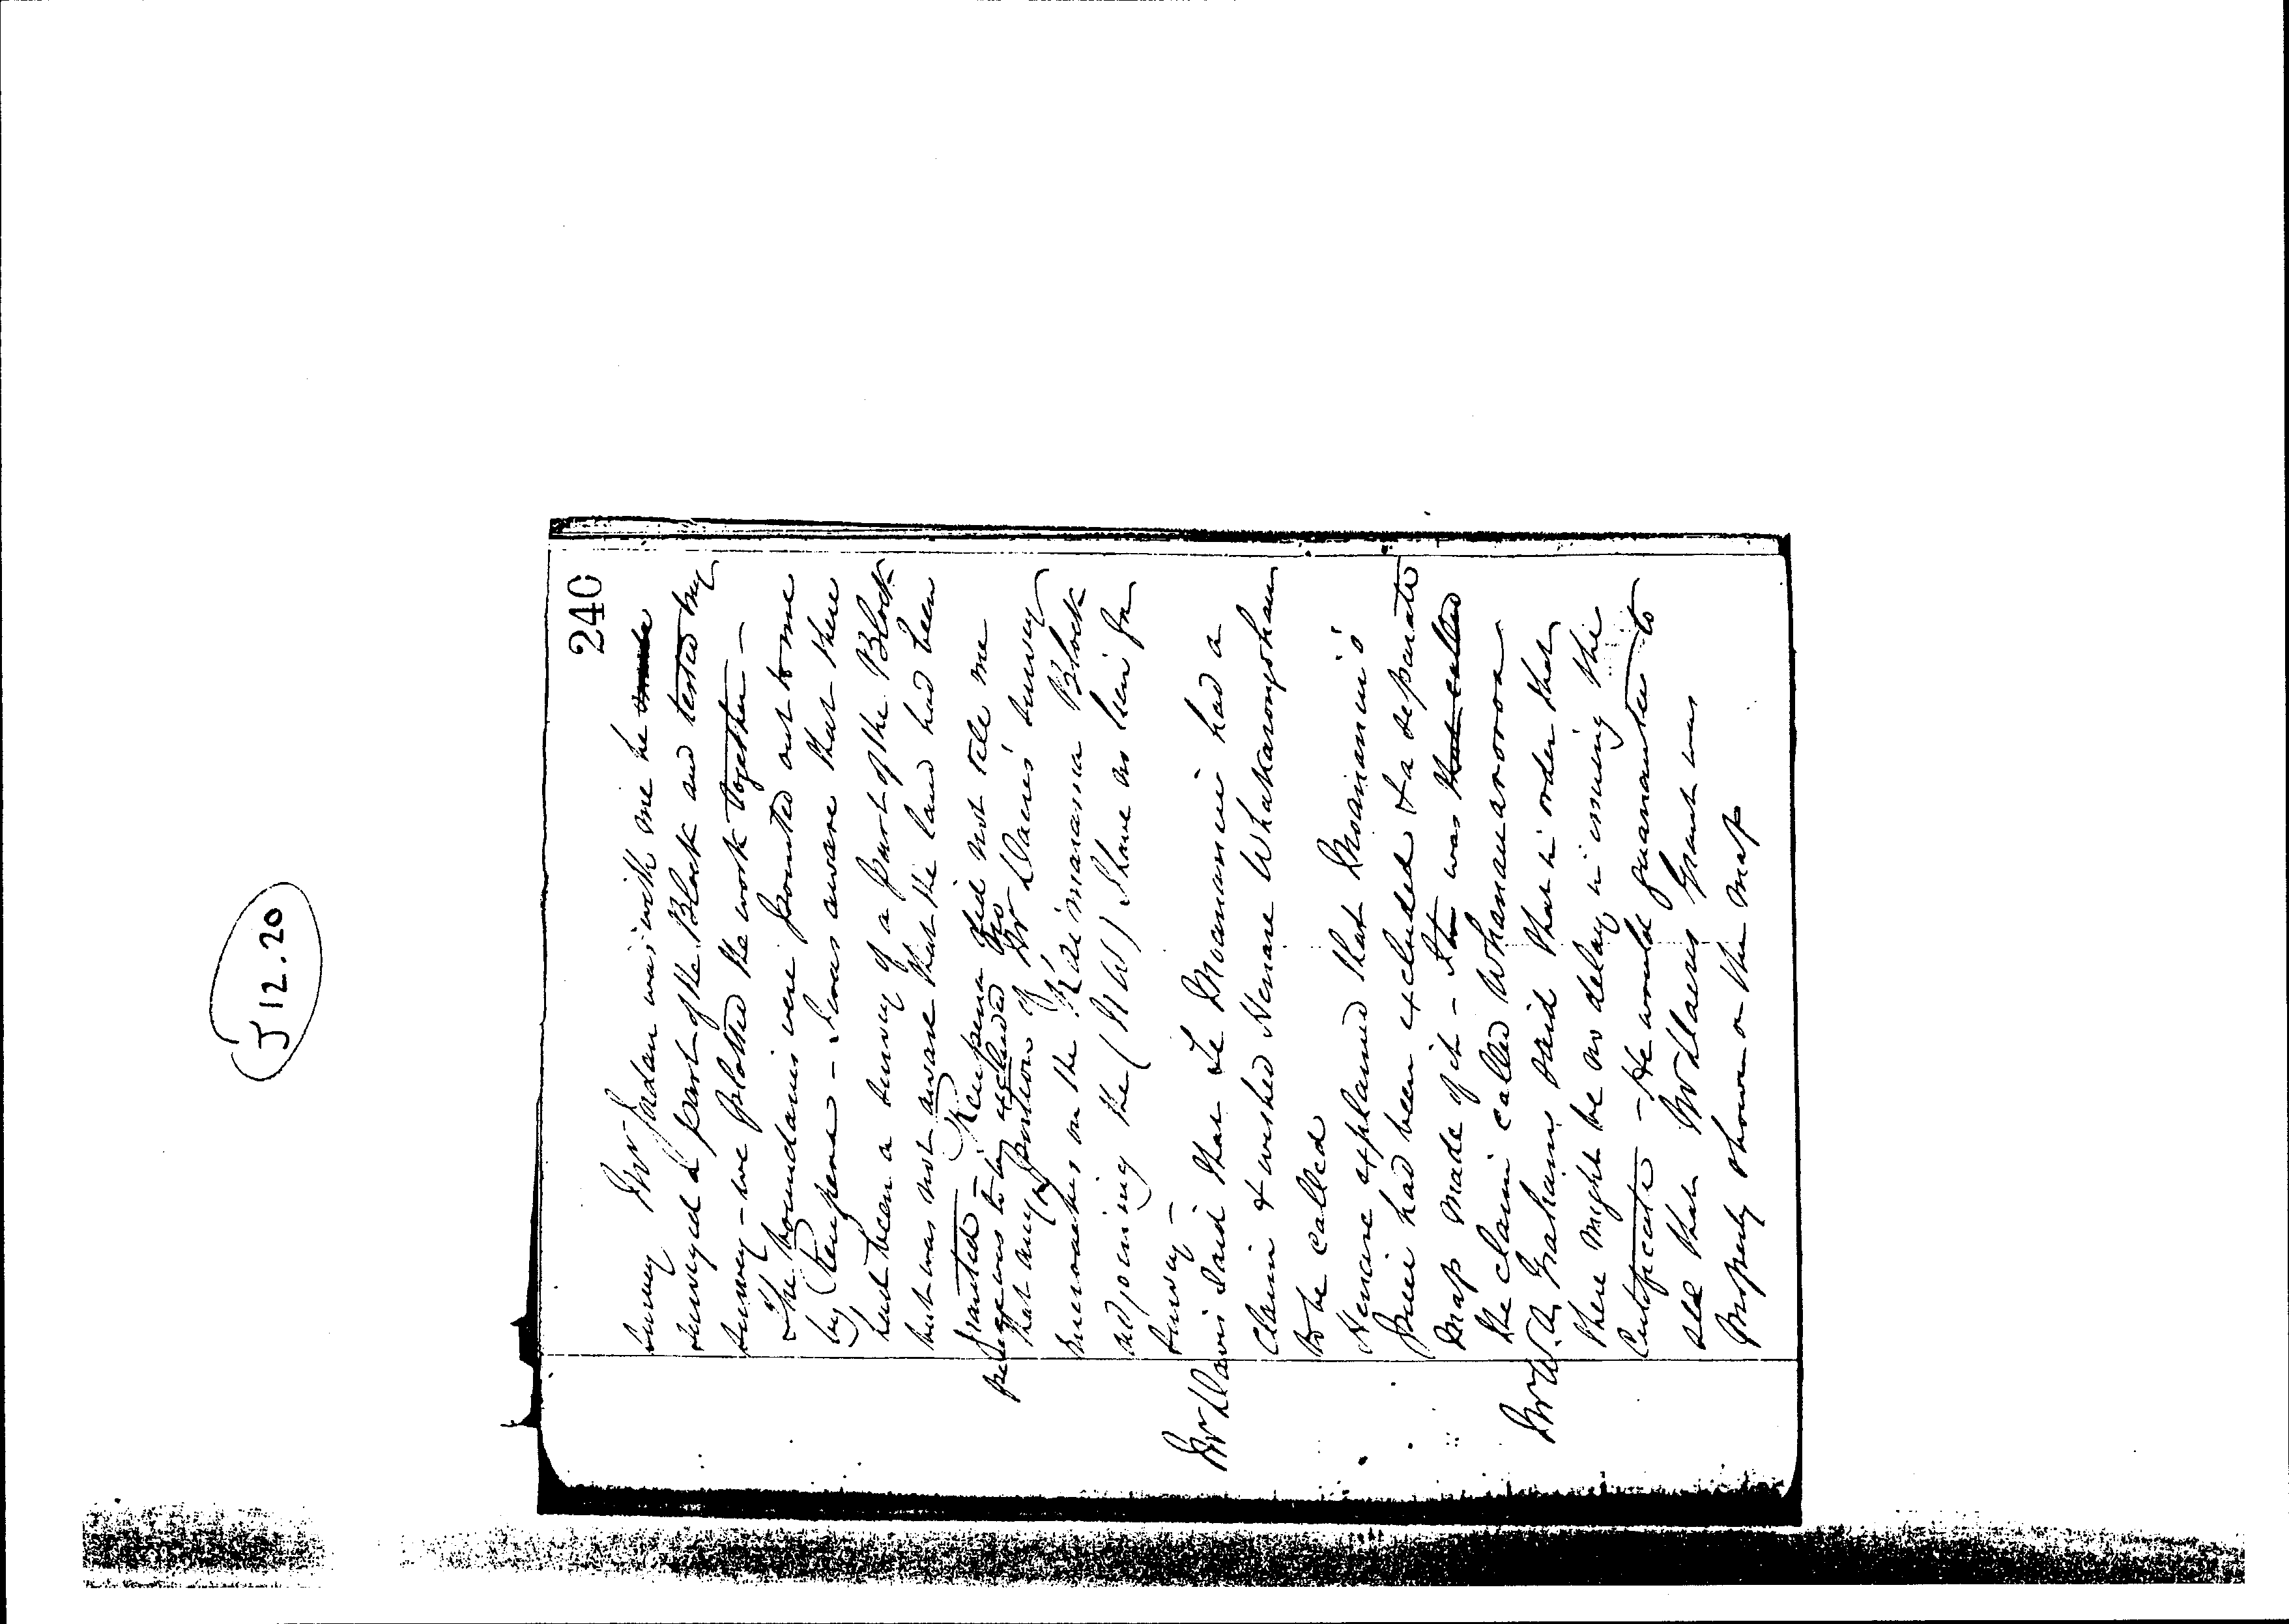 J 12.20
240
Survey Mr Jordan was with me he made
surveyed a part of the Block and tested my
survey - we plotted the work together -
The boundaries were pointed out to me
by Reupena - I was aware that there
had been a survey of a part of the Block
but was not aware that the land had been
granted - Reupena did not tell me
piece was to be excluded no
that any portion of Dr Davies' survey
encroaches on the Kaimanawa Block
adjoining the (NW) I have no lien for
survey -
Mr Davis said that Te Moananui had a
claim & wished Henare Whakarongohau
to be called
Henare explained that Moananui's
piece had been excluded & a separate
map made of it - It was that called
the claim called Whanauaroroa
Mr W. A. Graham said that in order that
there might be no delay in issuing the
Certificate - He would guarantee to
see that Mr Davies Grant was
properly shown on the map